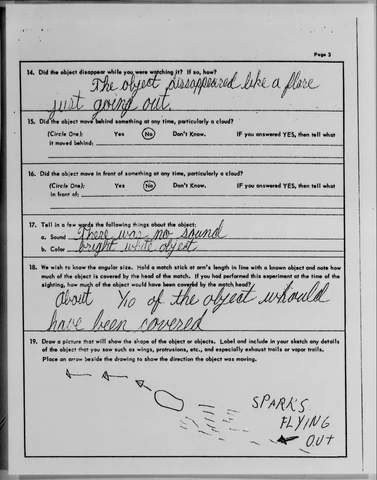 Page 3
14. Did the object disappear while you were watching it? If so, how?
The object dissappeared like a flare
just going out.
15. Did the object move behind something at any time, particularly a cloud?
(Circle One): Yes No Don't Know. IF you answered YES, then tell what
it moved behind:
16. Did the object move in front of something at any time, particularly a cloud?
(Circle One): Yes No Don't Know. IF you answered YES, then tell what
in front of:
17. Tell in a few words the following things about the object:
a. Sound There was no sound
b. Color bright white object
18. We wish to know the angular size. Hold a match stick at arm's length in line with a known object and note how
much of the object is covered by the head of the match. If you had performed this experiment at the time of the
sighting, how much of the object would have been covered by the match head?
About 1/10 of the object whould
have been covered
19. Draw a picture that will show the shape of the object or objects. Label and include in your sketch any details
of the object that you saw such as wings, protrusions, etc., and especially exhaust trails or vapor trails.
Place an arrow beside the drawing to show the direction the object was moving.
SPARKS
FLYING
OUT